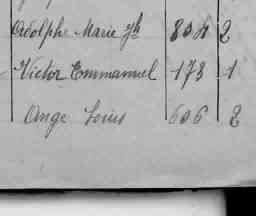 Adolphe Marie Jh 804 2
Victor Emmanuel 173 1
Ange Louis 606 2